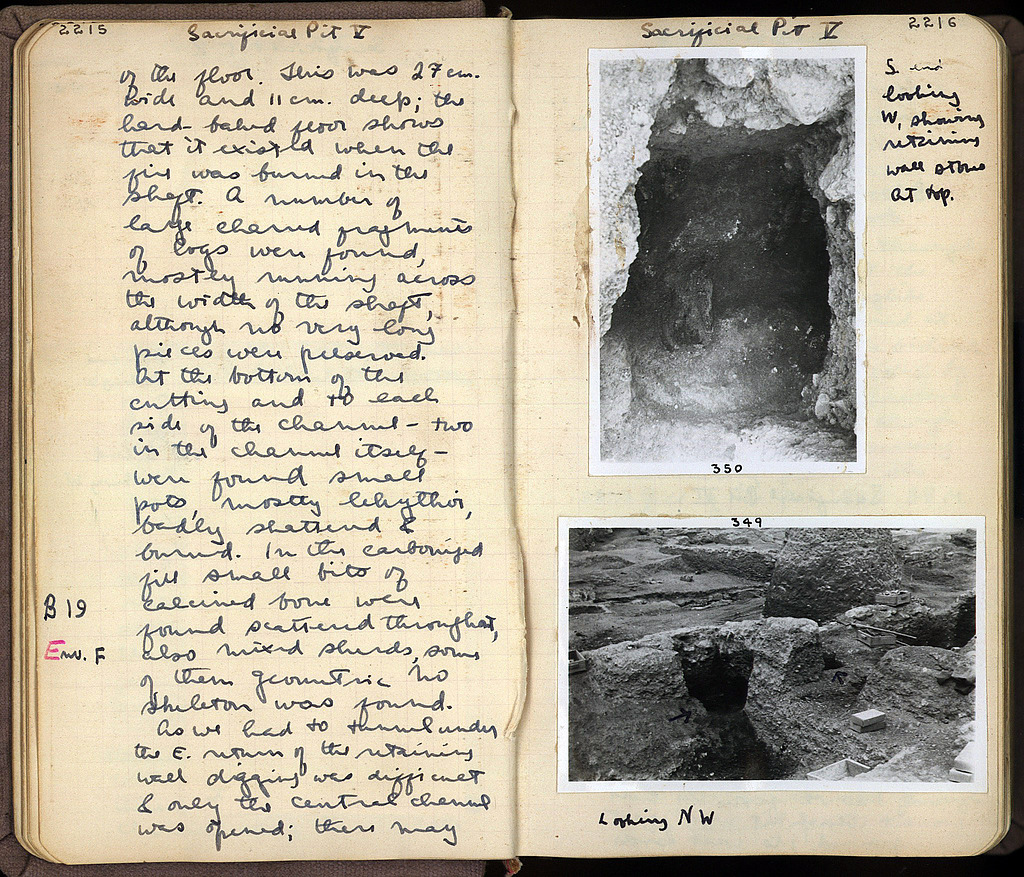 2215
Sacrificial Pit V
of the floor. This was 27 cm.
wide and 11 cm. deep; the
hard-baked floor shows
that it existed when the
fire was burned in the
shaft. A number of
large charred fragments
of logs were found,
mostly running across
the width of the shaft,
although no very long
pieces were preserved.
At the bottom of the
cutting and to each
side of the channel – two
in the channel itself –
were found small
pots, mostly lekythoi,
badly shattered &
burned. In the carbonized
fill small bits of
B 19 calcined bone were
found scattered throughout,
Env. F also mixed sherds, some
of them Geometric. No
skeleton was found.
As we had to tunnel under
the E. return of the retaining
wall digging was difficult
& only the central channel
was opened; there may
2216
Sacrificial Pit V
S. end
looking
W, showing
retaining
wall stones
at top.
350
349
Looking NW